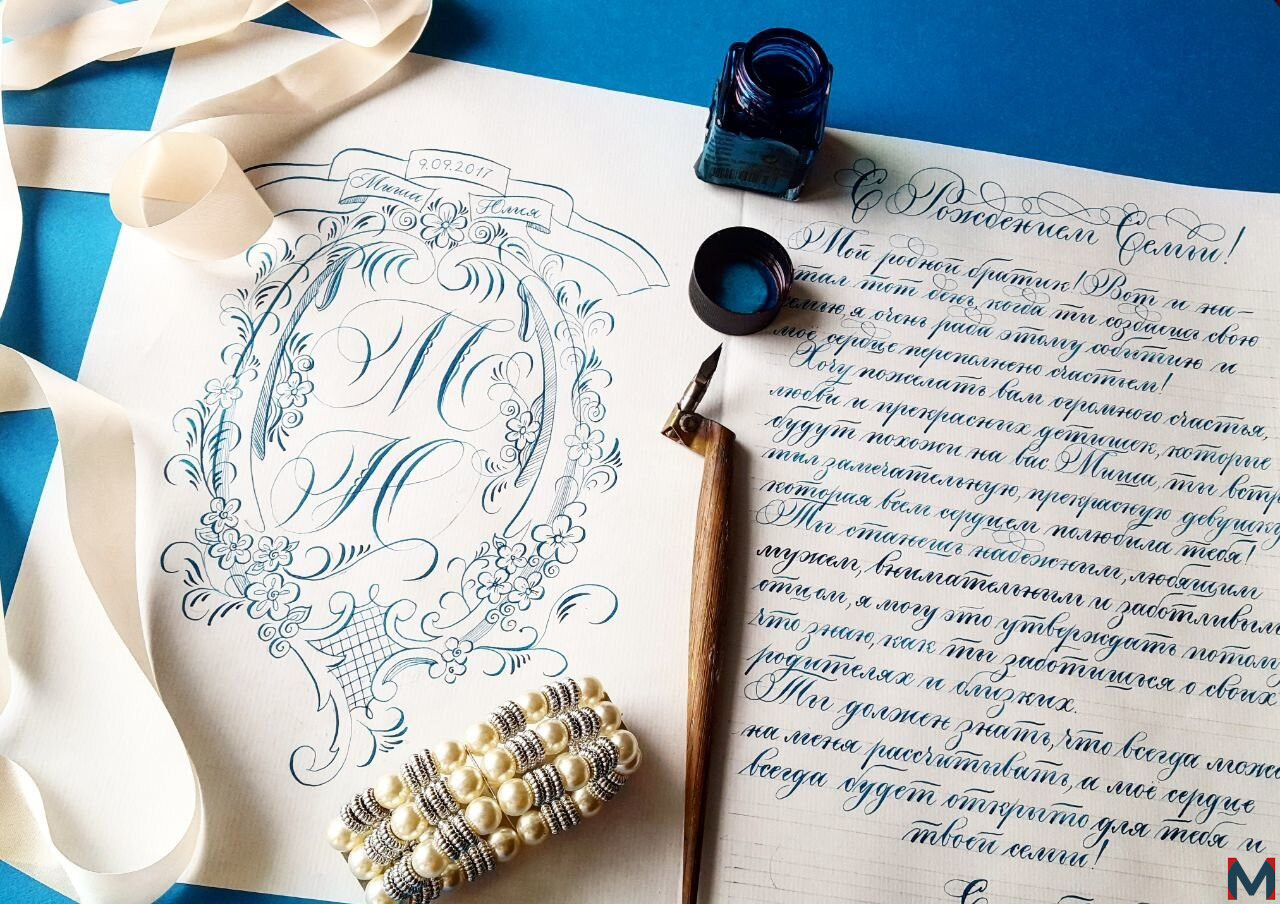 9.09.2017
Миша
Юлия
М
Н
С Рождением Семьи!
Мой родной братик! Вот и на-
стал тот день, когда ты создаёшь свою
семью, я очень рада этому событию и
моё сердце переполнено счастьем!
Хочу пожелать вам огромного счастья,
любви и прекрасных детишек, которые
будут похожи на вас. Миша, ты встре
тил замечательную, прекрасную девушку,
которая всем сердцем полюбила тебя!
Ты станешь надежным, любящим
мужем, внимательным и заботливым
отцом, я могу это утверждать потому
что знаю, как ты заботишься о своих
родителях и близких.
Ты должен знать, что всегда може
на меня рассчитывать, и моё сердце
всегда будет открыто для тебя и
твоей семьи!
С
M